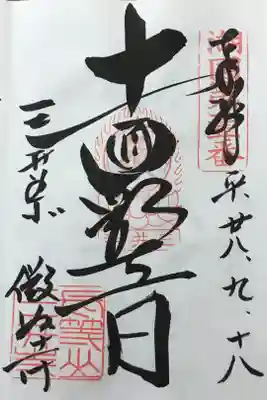 奉拝 平廿八、九、十八
十一面観音
三井寺
微妙寺